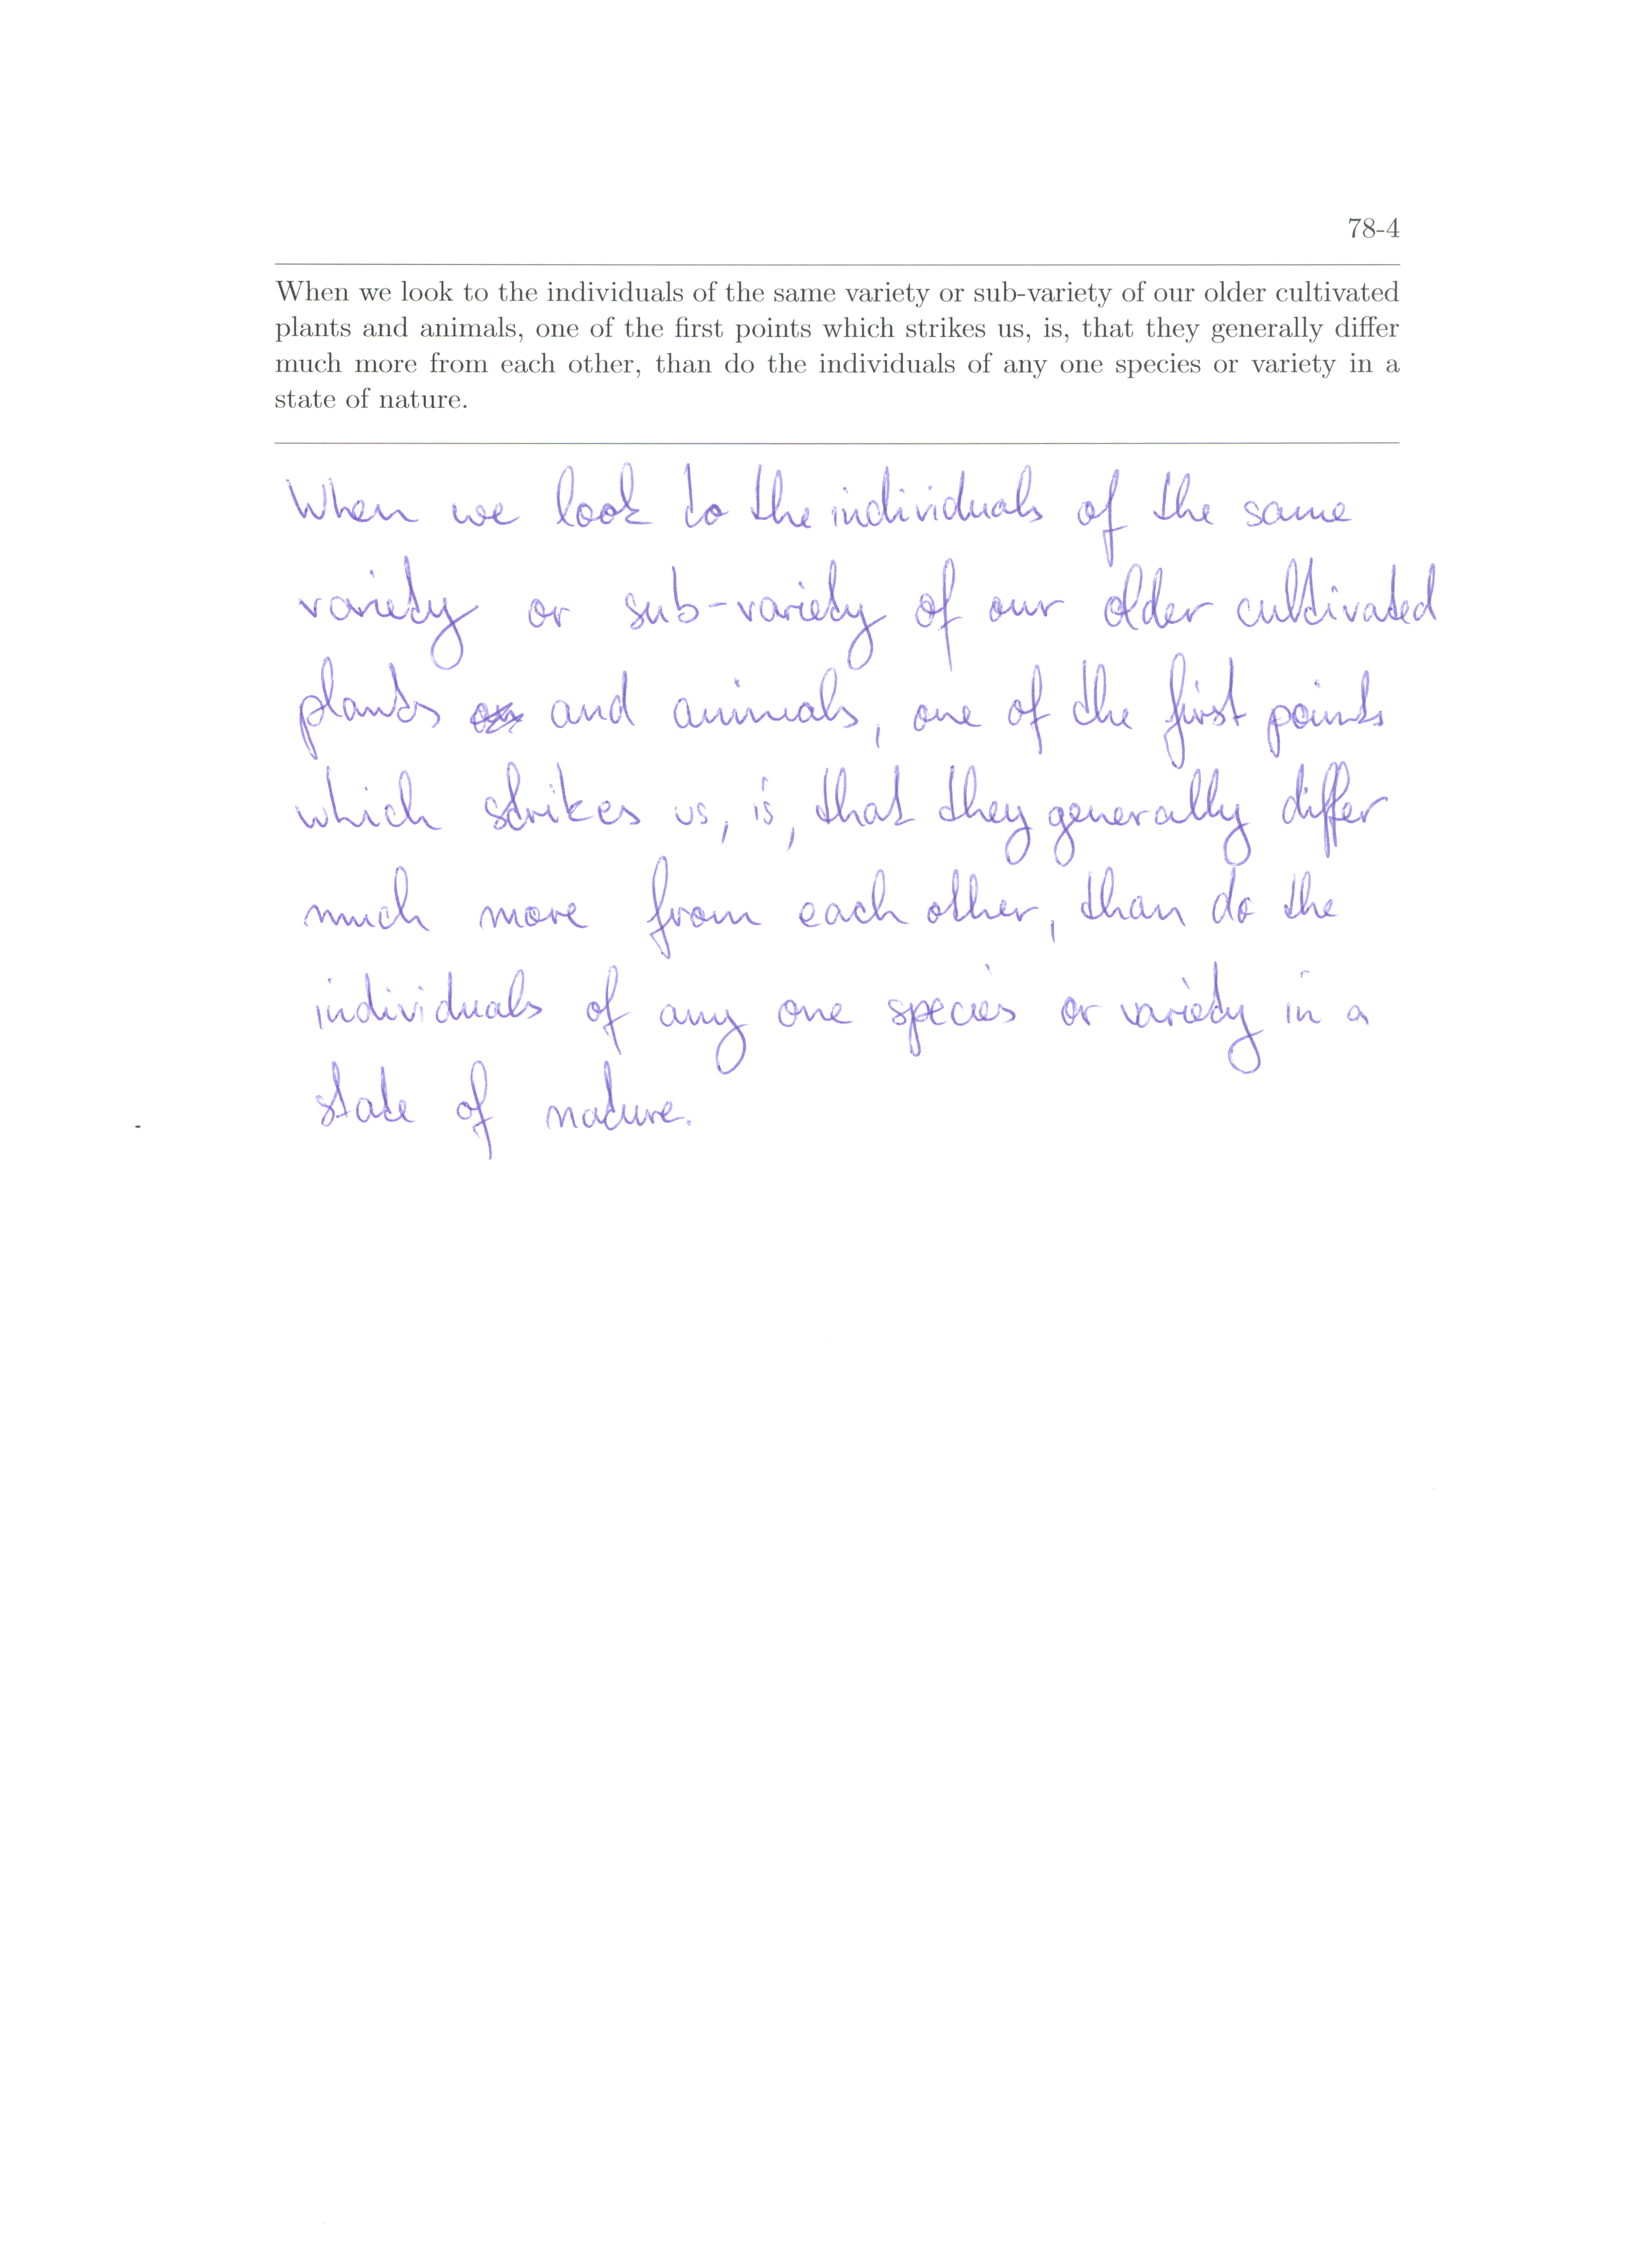 78-4
When we look to the individuals of the same variety or sub-variety of our older cultivated
plants and animals, one of the first points which strikes us, is, that they generally differ
much more from each other, than do the individuals of any one species or variety in a
state of nature.
When we look to the individuals of the same
variety or sub-variety of our older cultivated
plants and animals, one of the first points
which strikes us, is, that they generally differ
much more from each other, than do the
individuals of any one species or variety in a
state of nature.